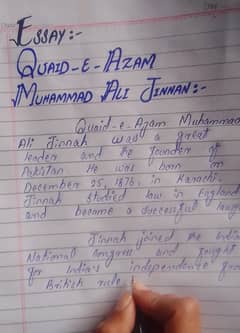 Essay:-
Quaid-e-Azam
Muhammad Ali Jinnah:-
Quaid-e-Azam Muhammad
Ali Jinnah was a great
leader and the founder of
Pakistan He was born on
December 25, 1876, in Karachi.
Jinnah studied law in England
and became a successful
Jinnah joined the
National Congress and fought
for India's independence
British rule.